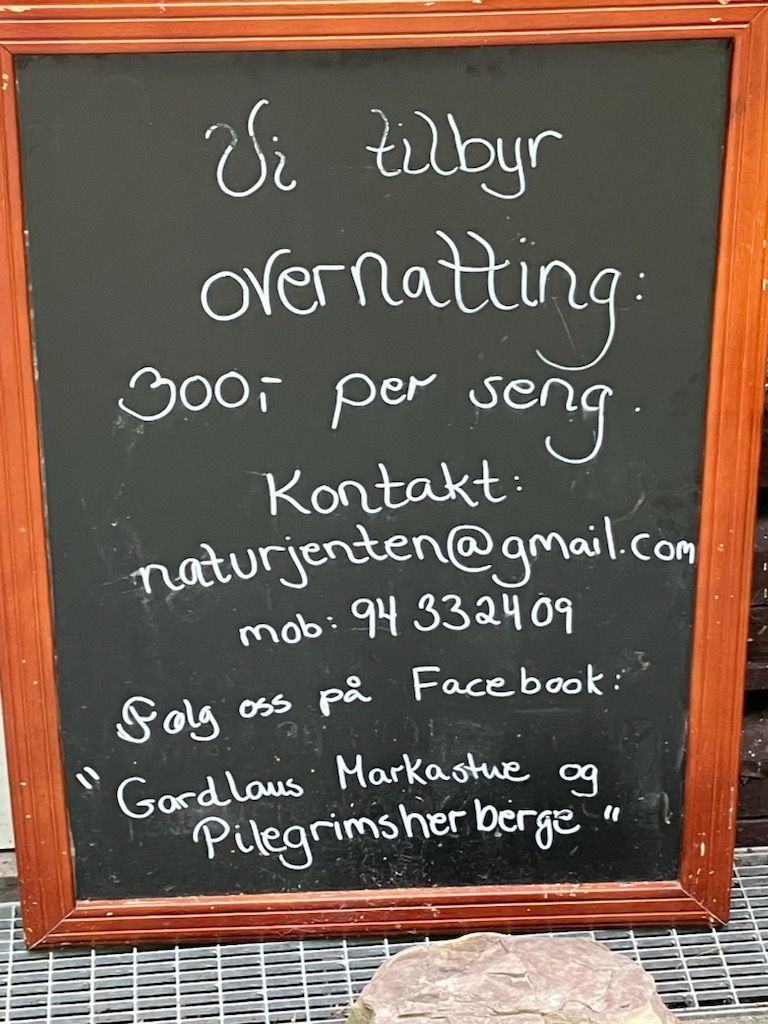 Vi tilbyr
overnatting:
300,- per seng.
Kontakt:
naturjenten@gmail.com
mob: 94 332409
Følg oss på Facebook:
"Gardlaus Markastue og
Pilegrimsherberge"